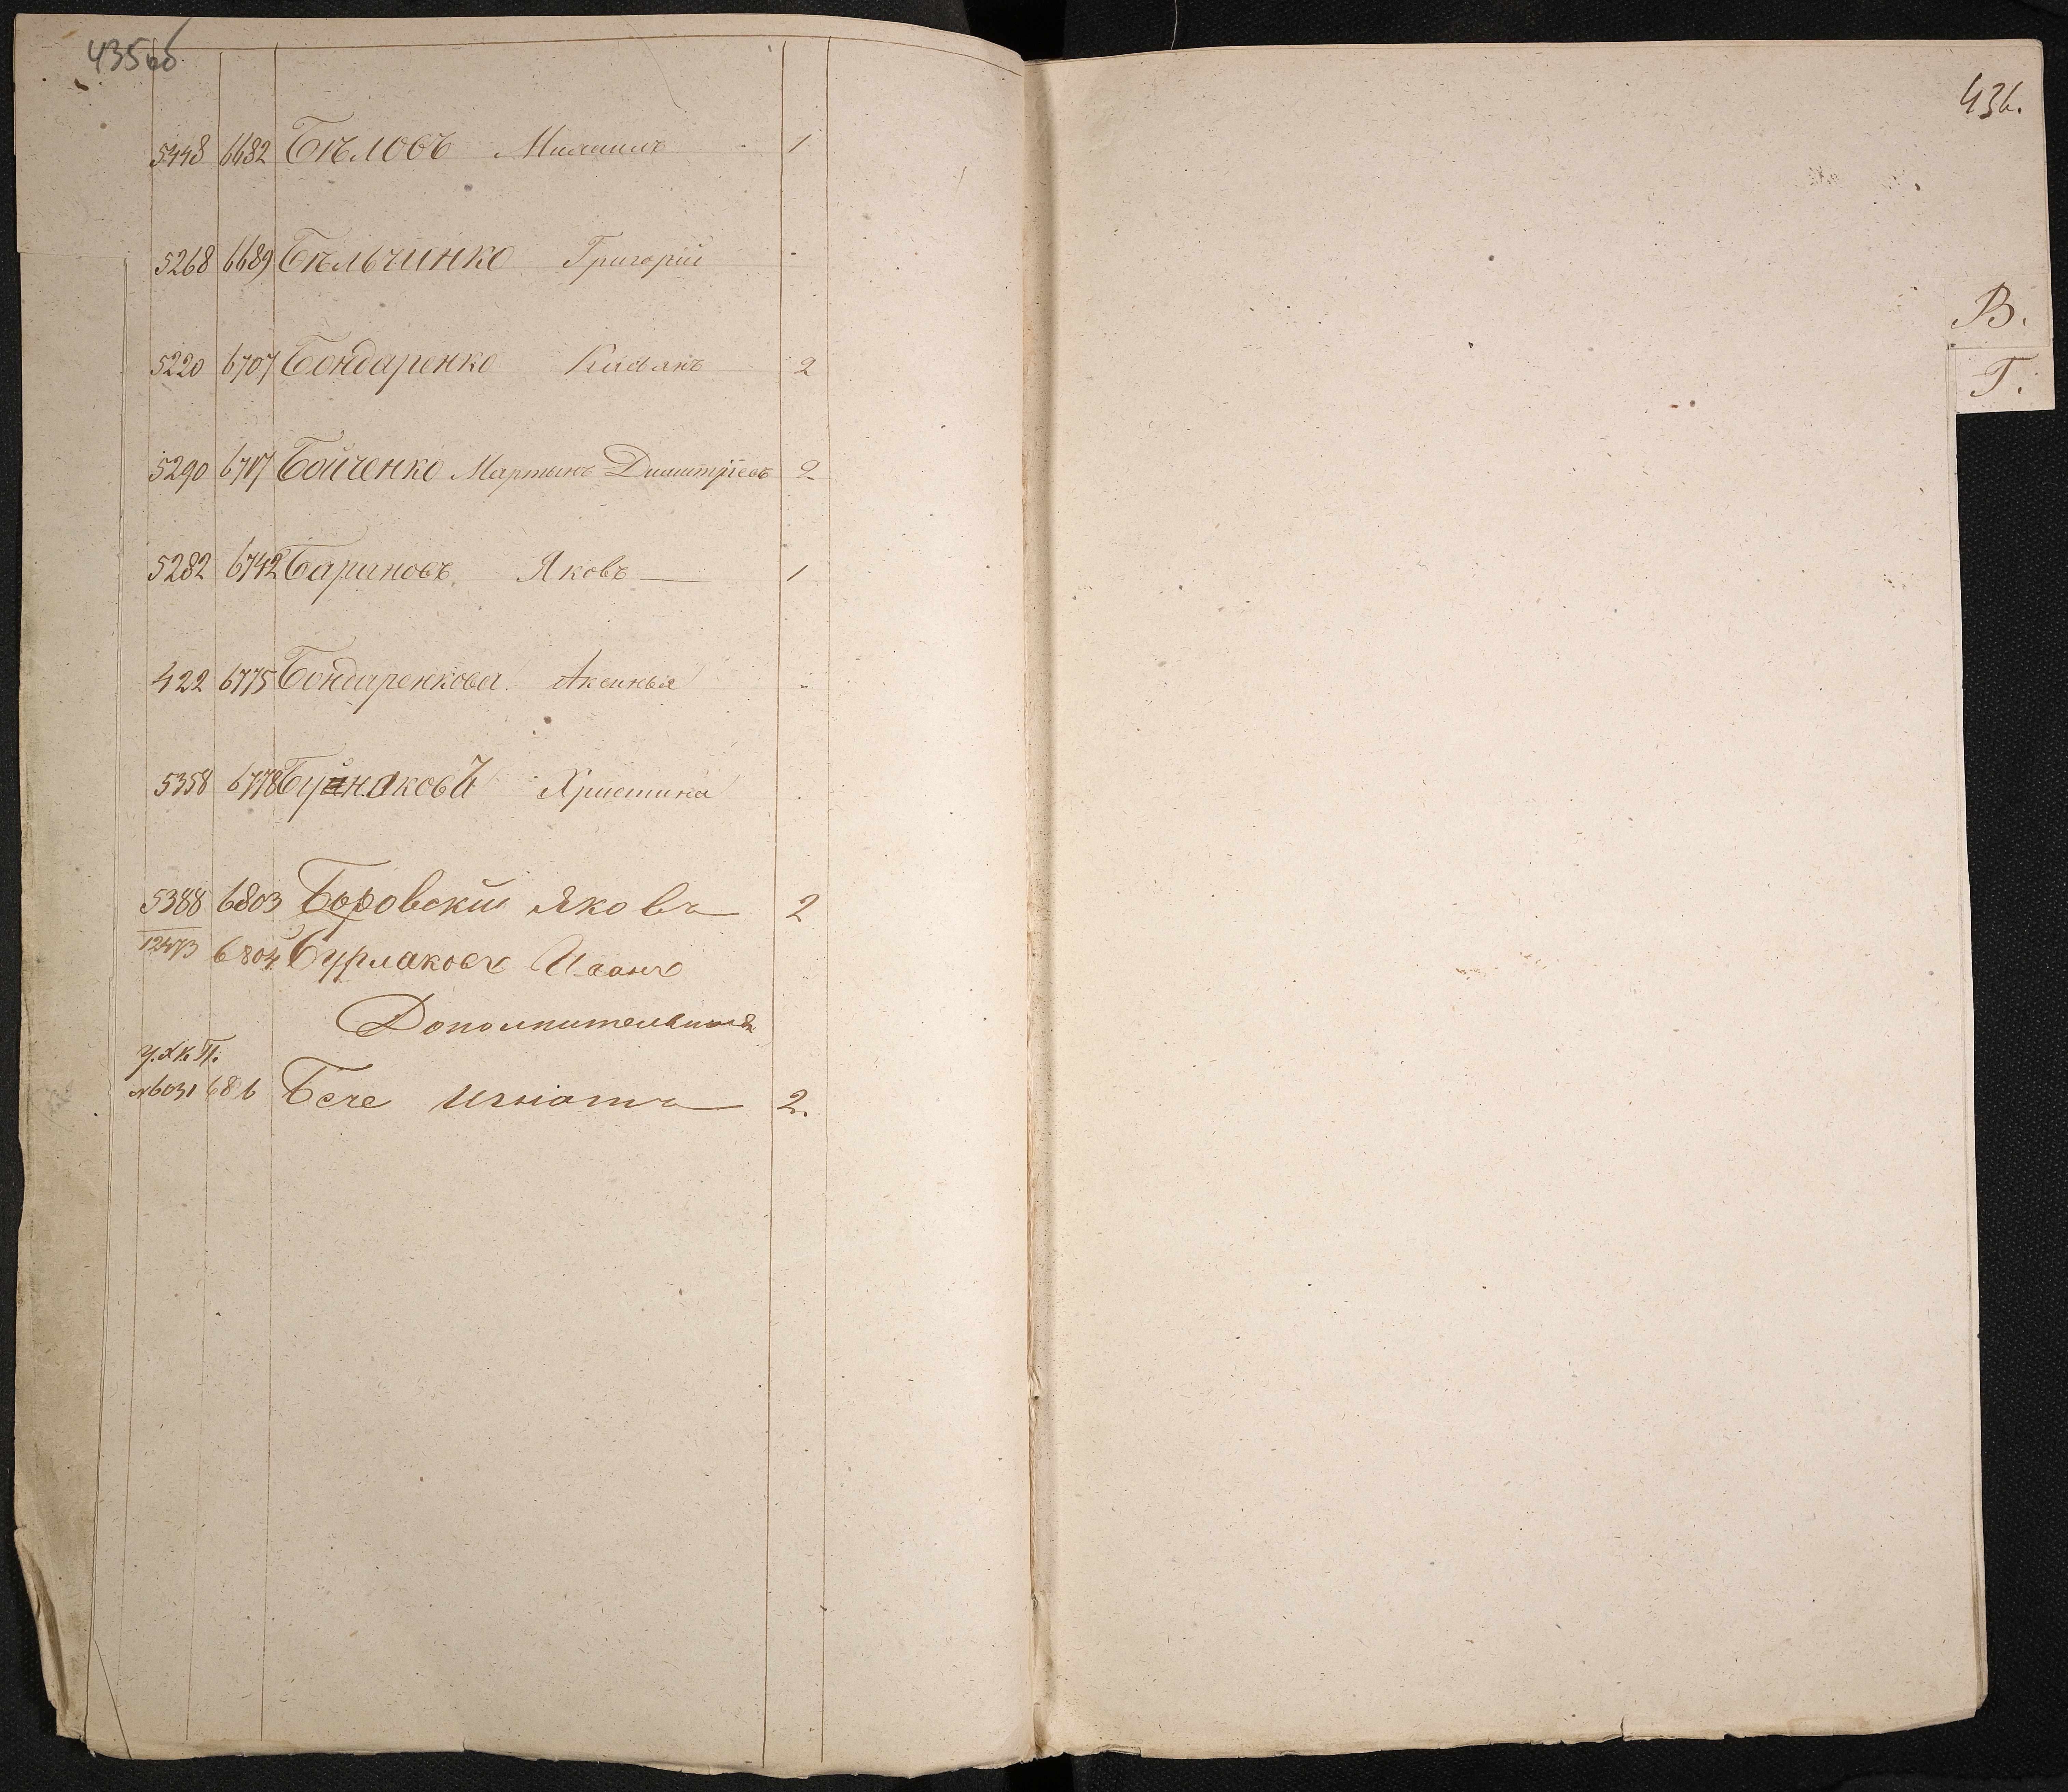 435об
5448 6682 Бѣловъ Михаилъ 1
5268 6689 Бѣльчинко Григорій
5220 6707 Бондаренко Касьянъ 2
5290 6717 Бойченко Мартынъ Дмитріевъ 2
5282 6742 Бариновъ Яковъ 1
422 6775 Бондаренкова Аксинья
5358 6778 Христина
5388 6803 Боровскій Яковъ 2
12473 6804 Бурлаковъ Иванъ
Дополнительный
№6031 686 Бече Игнатъ 2.
436.
В.
Г.